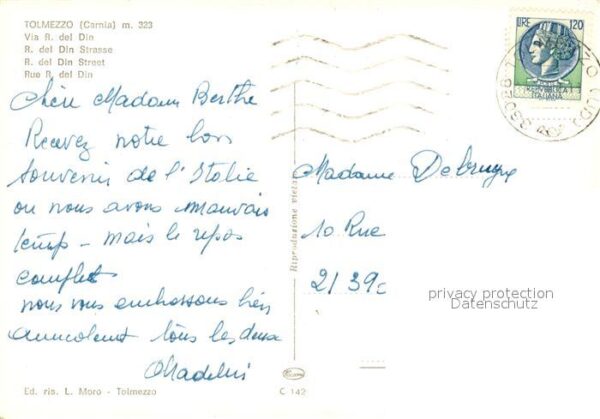 TOLMEZZO (Carnia) m. 323
Via R. del Din
R. del Din Strasse
R. del Din Street
Rue R. del Din
LIRE 120
REPUBBLICA
ITALIANA
33028 TOLMEZZO (UD)
Chère Madame Berthe
Recevez notre bon
souvenir de l'Italie
ou nous avons mauvais
temp - mais le repos
complet
nous vous embrassons bien
tous les deux
Madame Debruyne
10 Rue
2139c
privacy protection
Datenschutz
Riproduzione vietata
Ed. ris. L. Moro - Tolmezzo
C 142